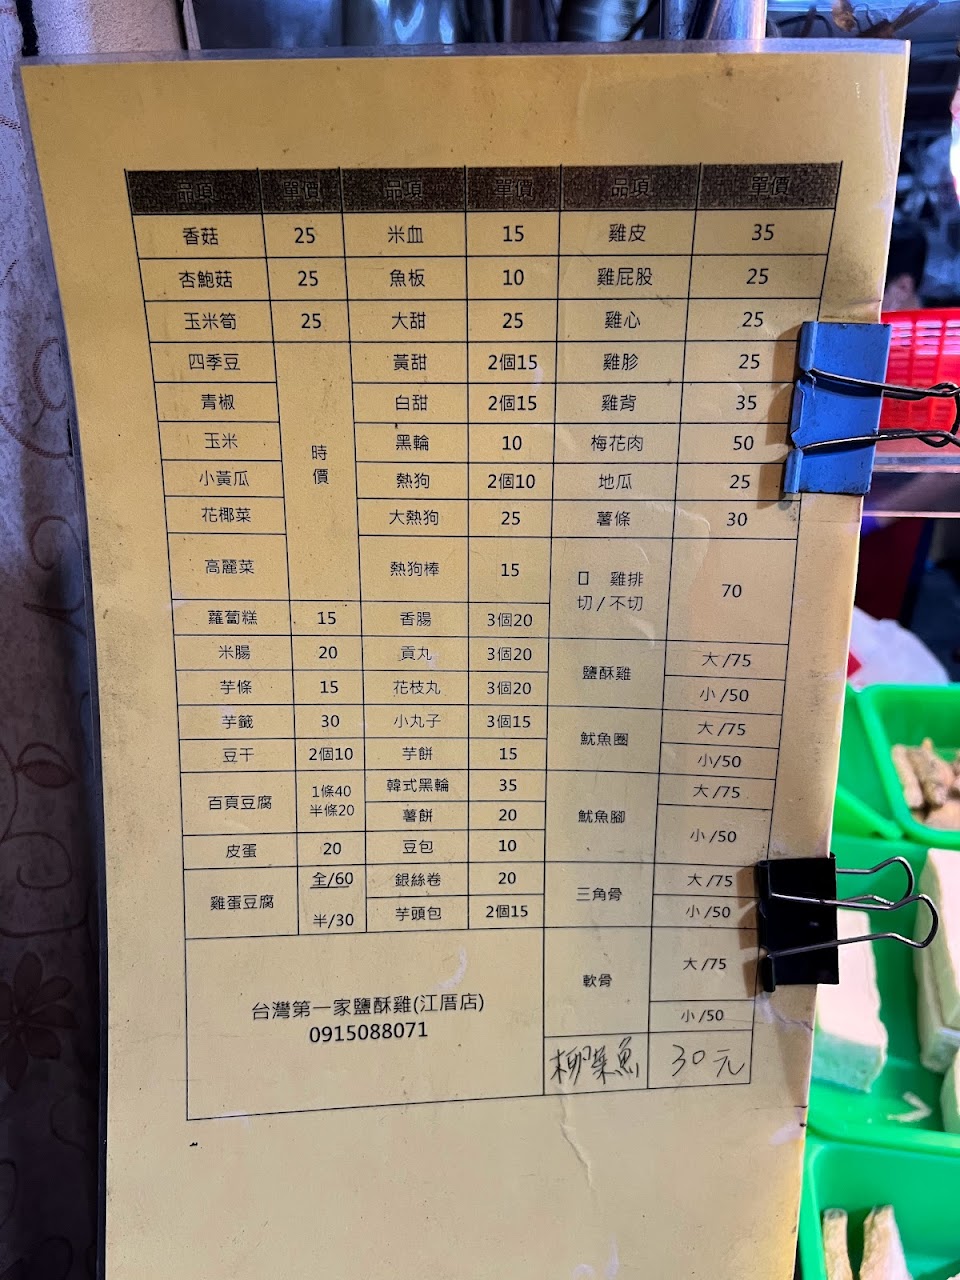 品項 單價 品項 單價 品項 單價
香菇 25 米血 15 雞皮 35
杏鮑菇 25 魚板 10 雞屁股 25
玉米筍 25 大甜 25 雞心 25
四季豆 時價 黃甜 2個15 雞胗 25
青椒 白甜 2個15 雞背 35
玉米 黑輪 10 梅花肉 50
小黃瓜 熱狗 2個10 地瓜 25
花椰菜 大熱狗 25 薯條 30
高麗菜 熱狗棒 15 口 雞排 70
切/不切
蘿蔔糕 15 香腸 3個20
米腸 20 貢丸 3個20 鹽酥雞 大/75
芋條 15 花枝丸 3個20 小/50
芋籤 30 小丸子 3個15 魷魚圈 大/75
豆干 2個10 芋餅 15 小/50
百頁豆腐 1條40 韓式黑輪 35 魷魚腳 大/75
半條20 薯餅 20 小/50
皮蛋 20 豆包 10
雞蛋豆腐 全/60 銀絲卷 20 三角骨 大/75
半/30 芋頭包 2個15 小/50
軟骨 大/75
小/50
台灣第一家鹽酥雞(江厝店)
0915088071
柳葉魚 30元